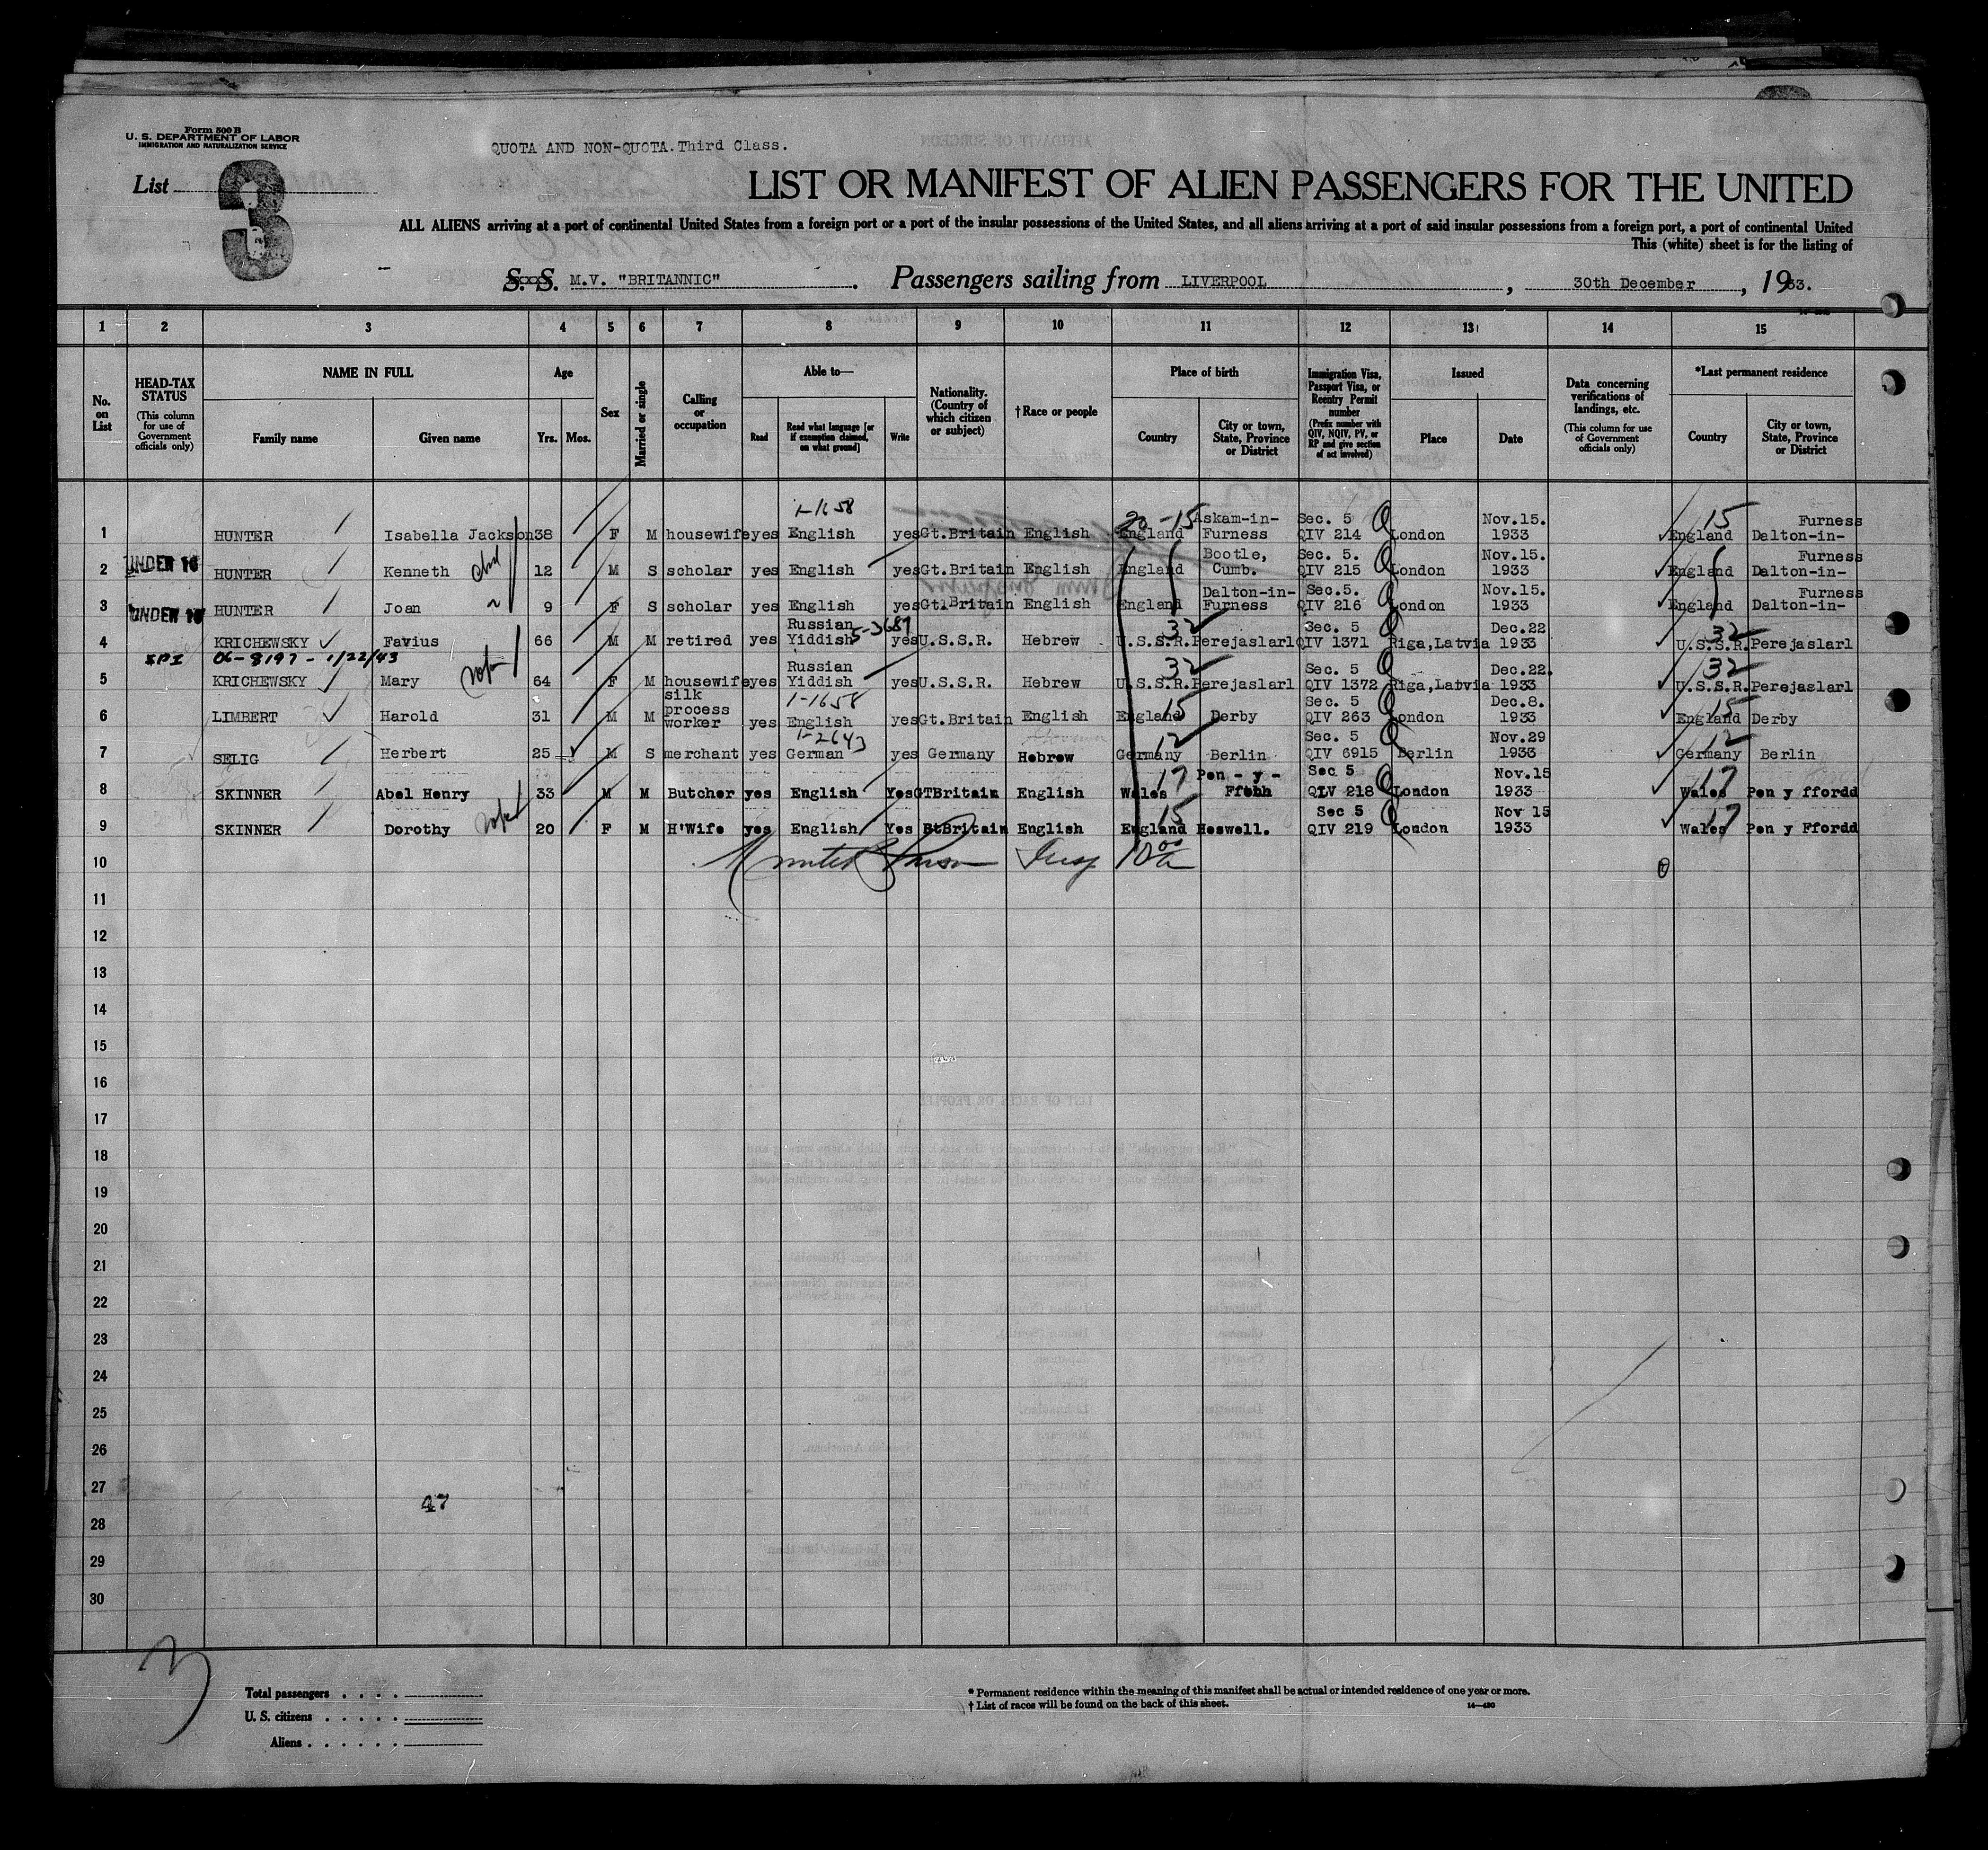 Form 500 B
U. S. DEPARTMENT OF LABOR
IMMIGRATION AND NATURALIZATION SERVICE
QUOTA AND NON-QUOTA.Third Class.
List 3
LIST OR MANIFEST OF ALIEN PASSENGERS FOR THE UNITED
ALL ALIENS arriving at a port of continental United States from a foreign port or a port of the insular possessions of the United States, and all aliens arriving at a port of said insular possessions from a foreign port, a port of continental United
This (white) sheet is for the listing of
S. S. M.V. "BRITANNIC" . Passengers sailing from LIVERPOOL , 30th December , 1933.
1 2 3 4 5 6 7 8 9 10 11 12 13 14 15
No. on List
HEAD-TAX STATUS
(This column for use of Government officials only)
NAME IN FULL
Family name Given name
Age
Yrs. Mos.
Sex
Married or single
Calling or occupation
Able to—
Read Read what language [or if exemption claimed, on what ground] Write
Nationality. (Country of which citizen or subject)
† Race or people
Place of birth
Country City or town, State, Province or District
Immigration Visa, Passport Visa, or Reentry Permit number
(Prefix number with QIV, NQIV, PV, or RP and give section of act involved)
Issued
Place Date
Data concerning verifications of landings, etc.
(This column for use of Government officials only)
*Last permanent residence
Country City or town, State, Province or District
1-1658
20-15 Askam-in- Sec. 5 Nov.15. 15 Furness
1 HUNTER Isabella Jackson 38 F M housewife yes English yes Gt.Britain English England Furness QIV 214 London 1933 England Dalton-in-
UNDER 16 Bootle, Sec. 5. Nov.15. Furness
2 HUNTER Kenneth 12 M S scholar yes English yes Gt.Britain English England Cumb. QIV 215 London 1933 England Dalton-in-
UNDER 16 Dalton-in- Sec.5. Nov.15. Furness
3 HUNTER Joan 9 F S scholar yes English yes Gt.Britain English England Furness QIV 216 London 1933 England Dalton-in-
Russian 5-3689 32 Sec. 5 Dec.22 32
4 KRICHEWSKY Favius 66 M M retired yes Yiddish yes U.S.S.R. Hebrew U.S.S.R. Perejaslarl QIV 1371 Riga,Latvia 1933 U.S.S.R. Perejaslarl
06-8197-1/22/43
Russian 32 Sec. 5 Dec.22. 32
5 KRICHEWSKY Mary 64 F M housewife yes Yiddish yes U.S.S.R. Hebrew U.S.S.R. Perejaslarl QIV 1372 Riga,Latvia 1933 U.S.S.R. Perejaslarl
silk process 1-1658 15 Sec. 5 Dec.8. 15
6 LIMBERT Harold 31 M M worker yes English yes Gt.Britain English England Derby QIV 263 London 1933 England Derby
1-2643 12 Sec. 5 Nov.29 12
7 SELIG Herbert 25 M S merchant yes German yes Germany Hebrew Germany Berlin QIV 6915 Berlin 1933 Germany Berlin
17 Pen - y - Sec 5 Nov.15 17
8 SKINNER Abel Henry 33 M M Butcher yes English Yes GTBritain English Wales QLV 218 London 1933 Wales Pen y ffordd
15 Sec 5 Nov 15 17
9 SKINNER Dorothy 20 F M H'Wife yes English Yes GtBritain English England Heswell. QIV 219 London 1933 Wales Pen y Ffordd
10
11
12
13
14
15
16
17
18
19
20
21
22
23
24
25
26
27 47
28
29
30
3
Total passengers . . . .
U. S. citizens . . . . .
Aliens . . . . . .
* Permanent residence within the meaning of this manifest shall be actual or intended residence of one year or more.
† List of races will be found on the back of this sheet.
14—430